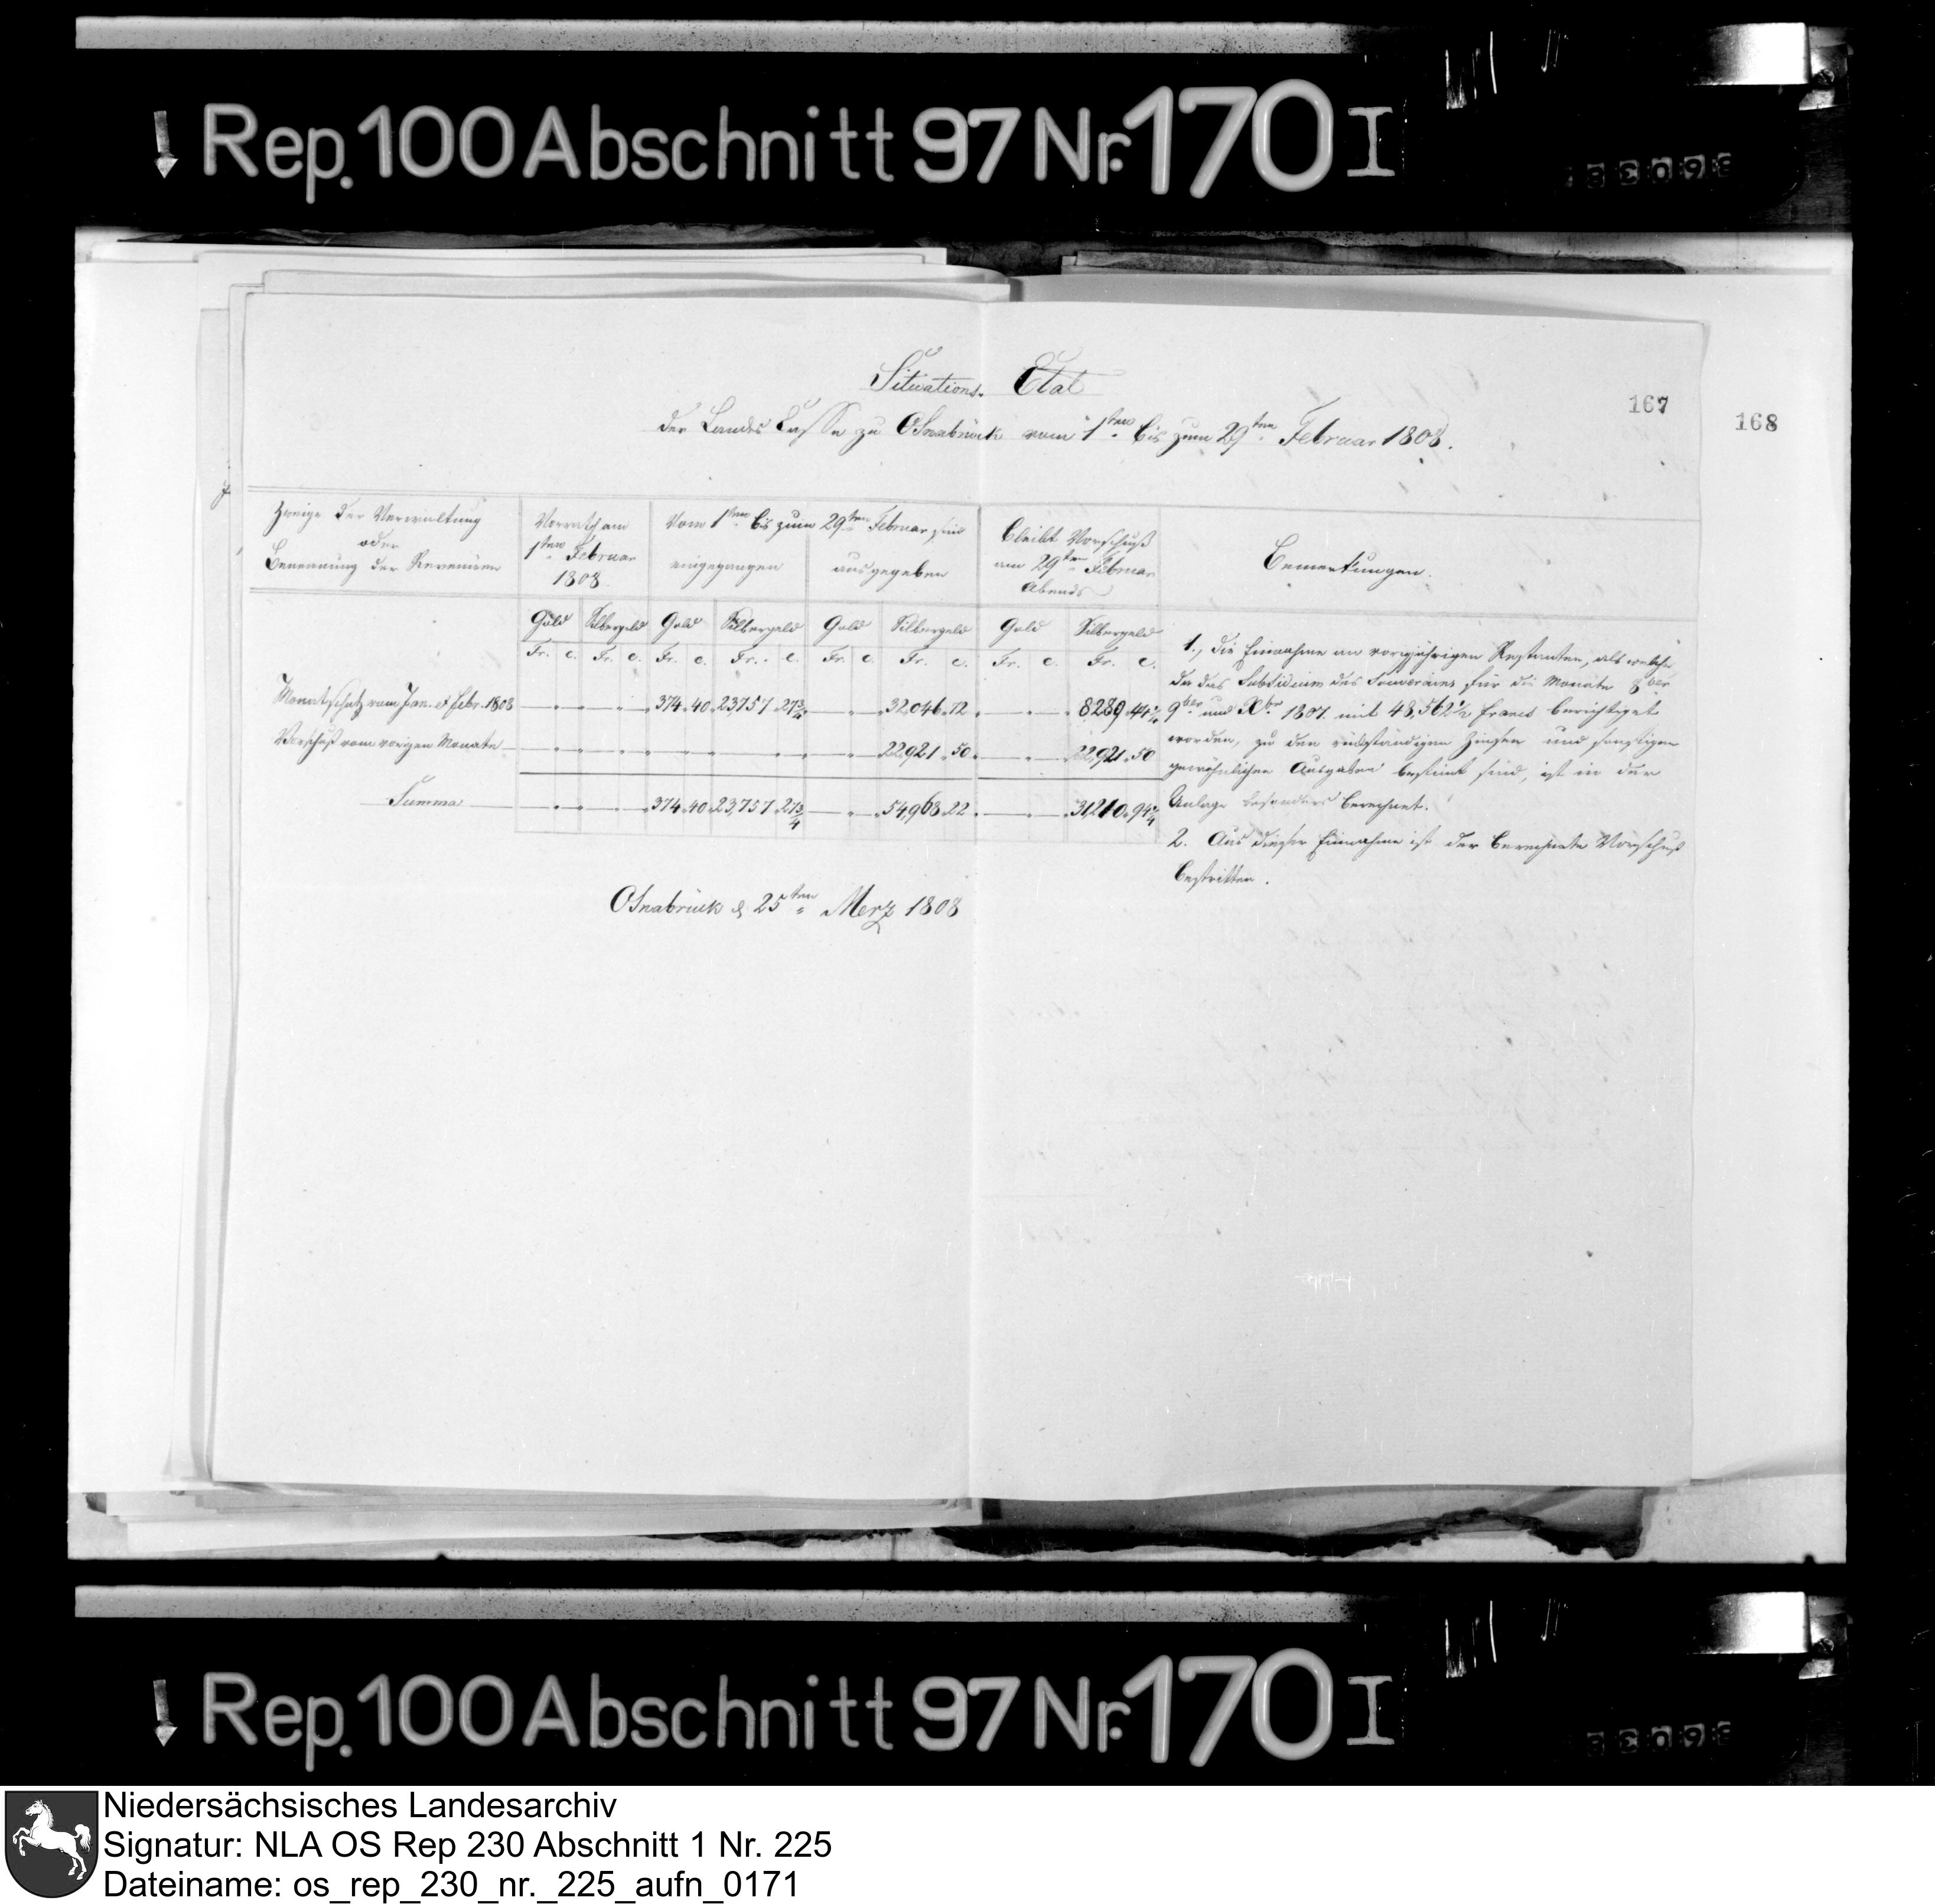 Rep. 100 Abschnitt 97 Nr. 170 I
Situations- Etat
der Landes Casse zu Osnabrück vom 1ten bis zum 29ten Februar 1808.
167
168
Zweige der Verwaltung
oder
Benennung der Revenüen
Vorrath am
1ten Februar
1808
Vom 1ten bis zum 29ten Februar sind
eingegangen
ausgegeben
Bleibt Vorschuß
am 29ten Februar
Abends
Bemerkungen.
Gold Silbergeld Gold Silbergeld Gold Silbergeld Gold Silbergeld
Fr. c. Fr. c. Fr. c. Fr. c. Fr. c. Fr. c. Fr. c. Fr. c.
Monatschatz vom Jan. et Febr. 1808 374 40 23757 27 3/4 32,046 72 8289 44 1/4
Vorschuß vom vorigen Monate 22,921 50 22,921 50
Summa 374 40 23,757 27 3/4 54,968 22 31,210 94 1/4
1., die Einnahme an vorjährigen Restanten, als welche
da das Subsidium des Souverains für die Monate 8ber
9ber und Xbr 1807. mit 48,562 1/2 Francs berichtiget
worden, zu den rückständigen Zinsen und sonstigen
gewöhnlichen Ausgaben bestimt sind, ist in der
Anlage besonders berechnet.
2. Aus dieser Einnahme ist der berechnete Vorschuß
bestritten.
Osnabrück d 25ten Merz 1808
Rep. 100 Abschnitt 97 Nr. 170 I
Niedersächsisches Landesarchiv
Signatur: NLA OS Rep 230 Abschnitt 1 Nr. 225
Dateiname: os_rep_230_nr._225_aufn_0171